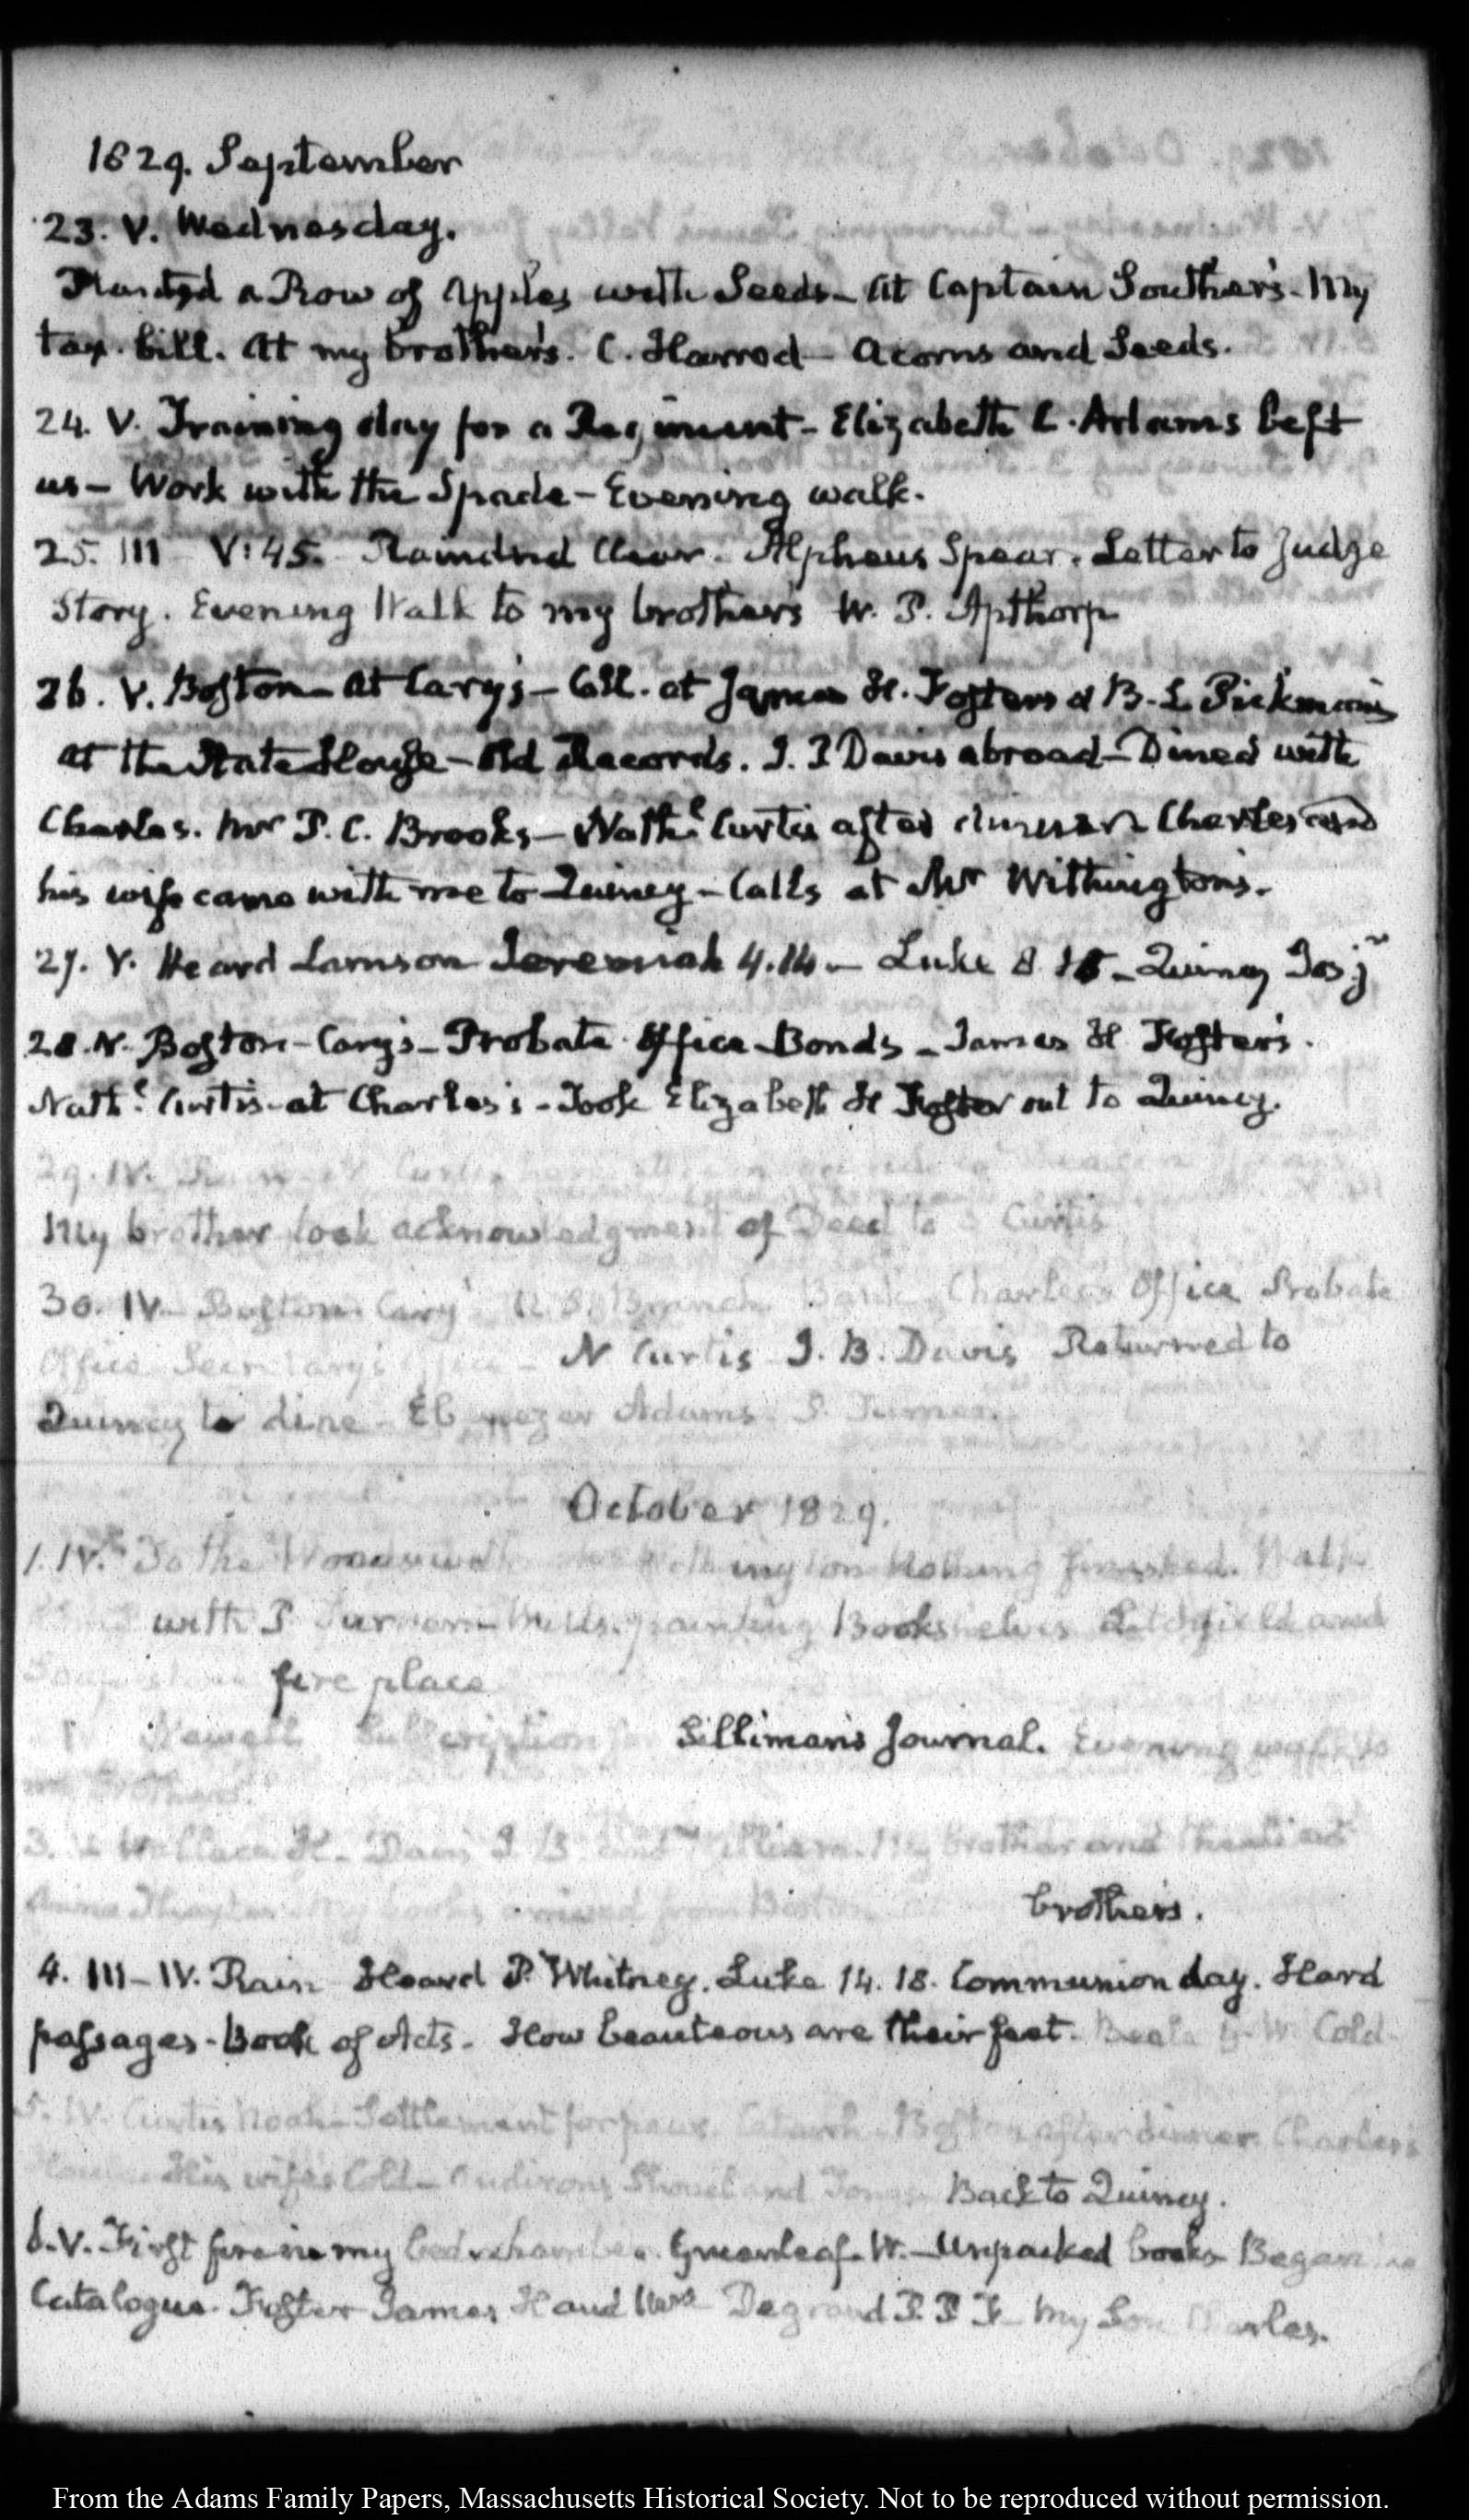 1829. September
23. V. Wednesday.
Planted a Row of Apples with Seeds – At Captain Souther's – My
tax bill. At my brother's. C. Harrod – Acorns and Seeds.
24. V. Training day for a Regiment – Elizabeth C. Adams left
us – Work with the Spade – Evening walk.
25. III V:45. Rain and Clear. Alpheus Spear. Letter to Judge
Story. Evening Walk to my brother's W. P. Apthorp
26. V. Boston – At Cary's – Call at James H. Foster's & B. L. Pickman's
At the State House – Old Records. I. P Davis abroad – Dined with
Charles. Mr P. C. Brooks – Nathl. Curtis after dinner Charles and
his wife came with me to Quincy – Calls at Mr Withington's.
27. V. Heard Lamson Jeremiah 4.14 – Luke 8.18 – Quincy Jos jr
28. IV. Boston – Cary's – Probate Office – Bonds – James H Foster's.
Nathl. Curtis – at Charles's – Took Elizabeth H Foster out to Quincy.
29. IV. Curtis
My brother took acknowledgment of Deed to Curtis
30. IV. Boston. Cary's U.S. Branch Bank, Charles's Office Probate
Office – N Curtis J. B. Davis Returned to
Quincy to dine – Ebenezer Adams. S. Turner.
October 1829.
1. IV. To the Nothing finished. Walk
with P Turner – painting Bookshelves and
fire place
Newell Subscription for Silliman's Journal. Evening walk to
my brother's.
3. Wallace H. – Davis J B. and William. My brother and
from Boston brother's.
4. III – IV. Rain Heard P. Whitney. Luke 14.18. Communion day. Hard
passages – Book of Acts. How beauteous are their feet. Beale G. W. Cold
5. IV. Curtis Noah – Settlement for Boston after dinner. Charles's
His wife's Cold – Andirons Shovel and Tongs Back to Quincy.
6. V. First fire in my bed chamber. Greenleaf W. – Unpacked books Began
Catalogue. Foster James H and Mrs Degrand P P F. My Son Charles.
From the Adams Family Papers, Massachusetts Historical Society. Not to be reproduced without permission.